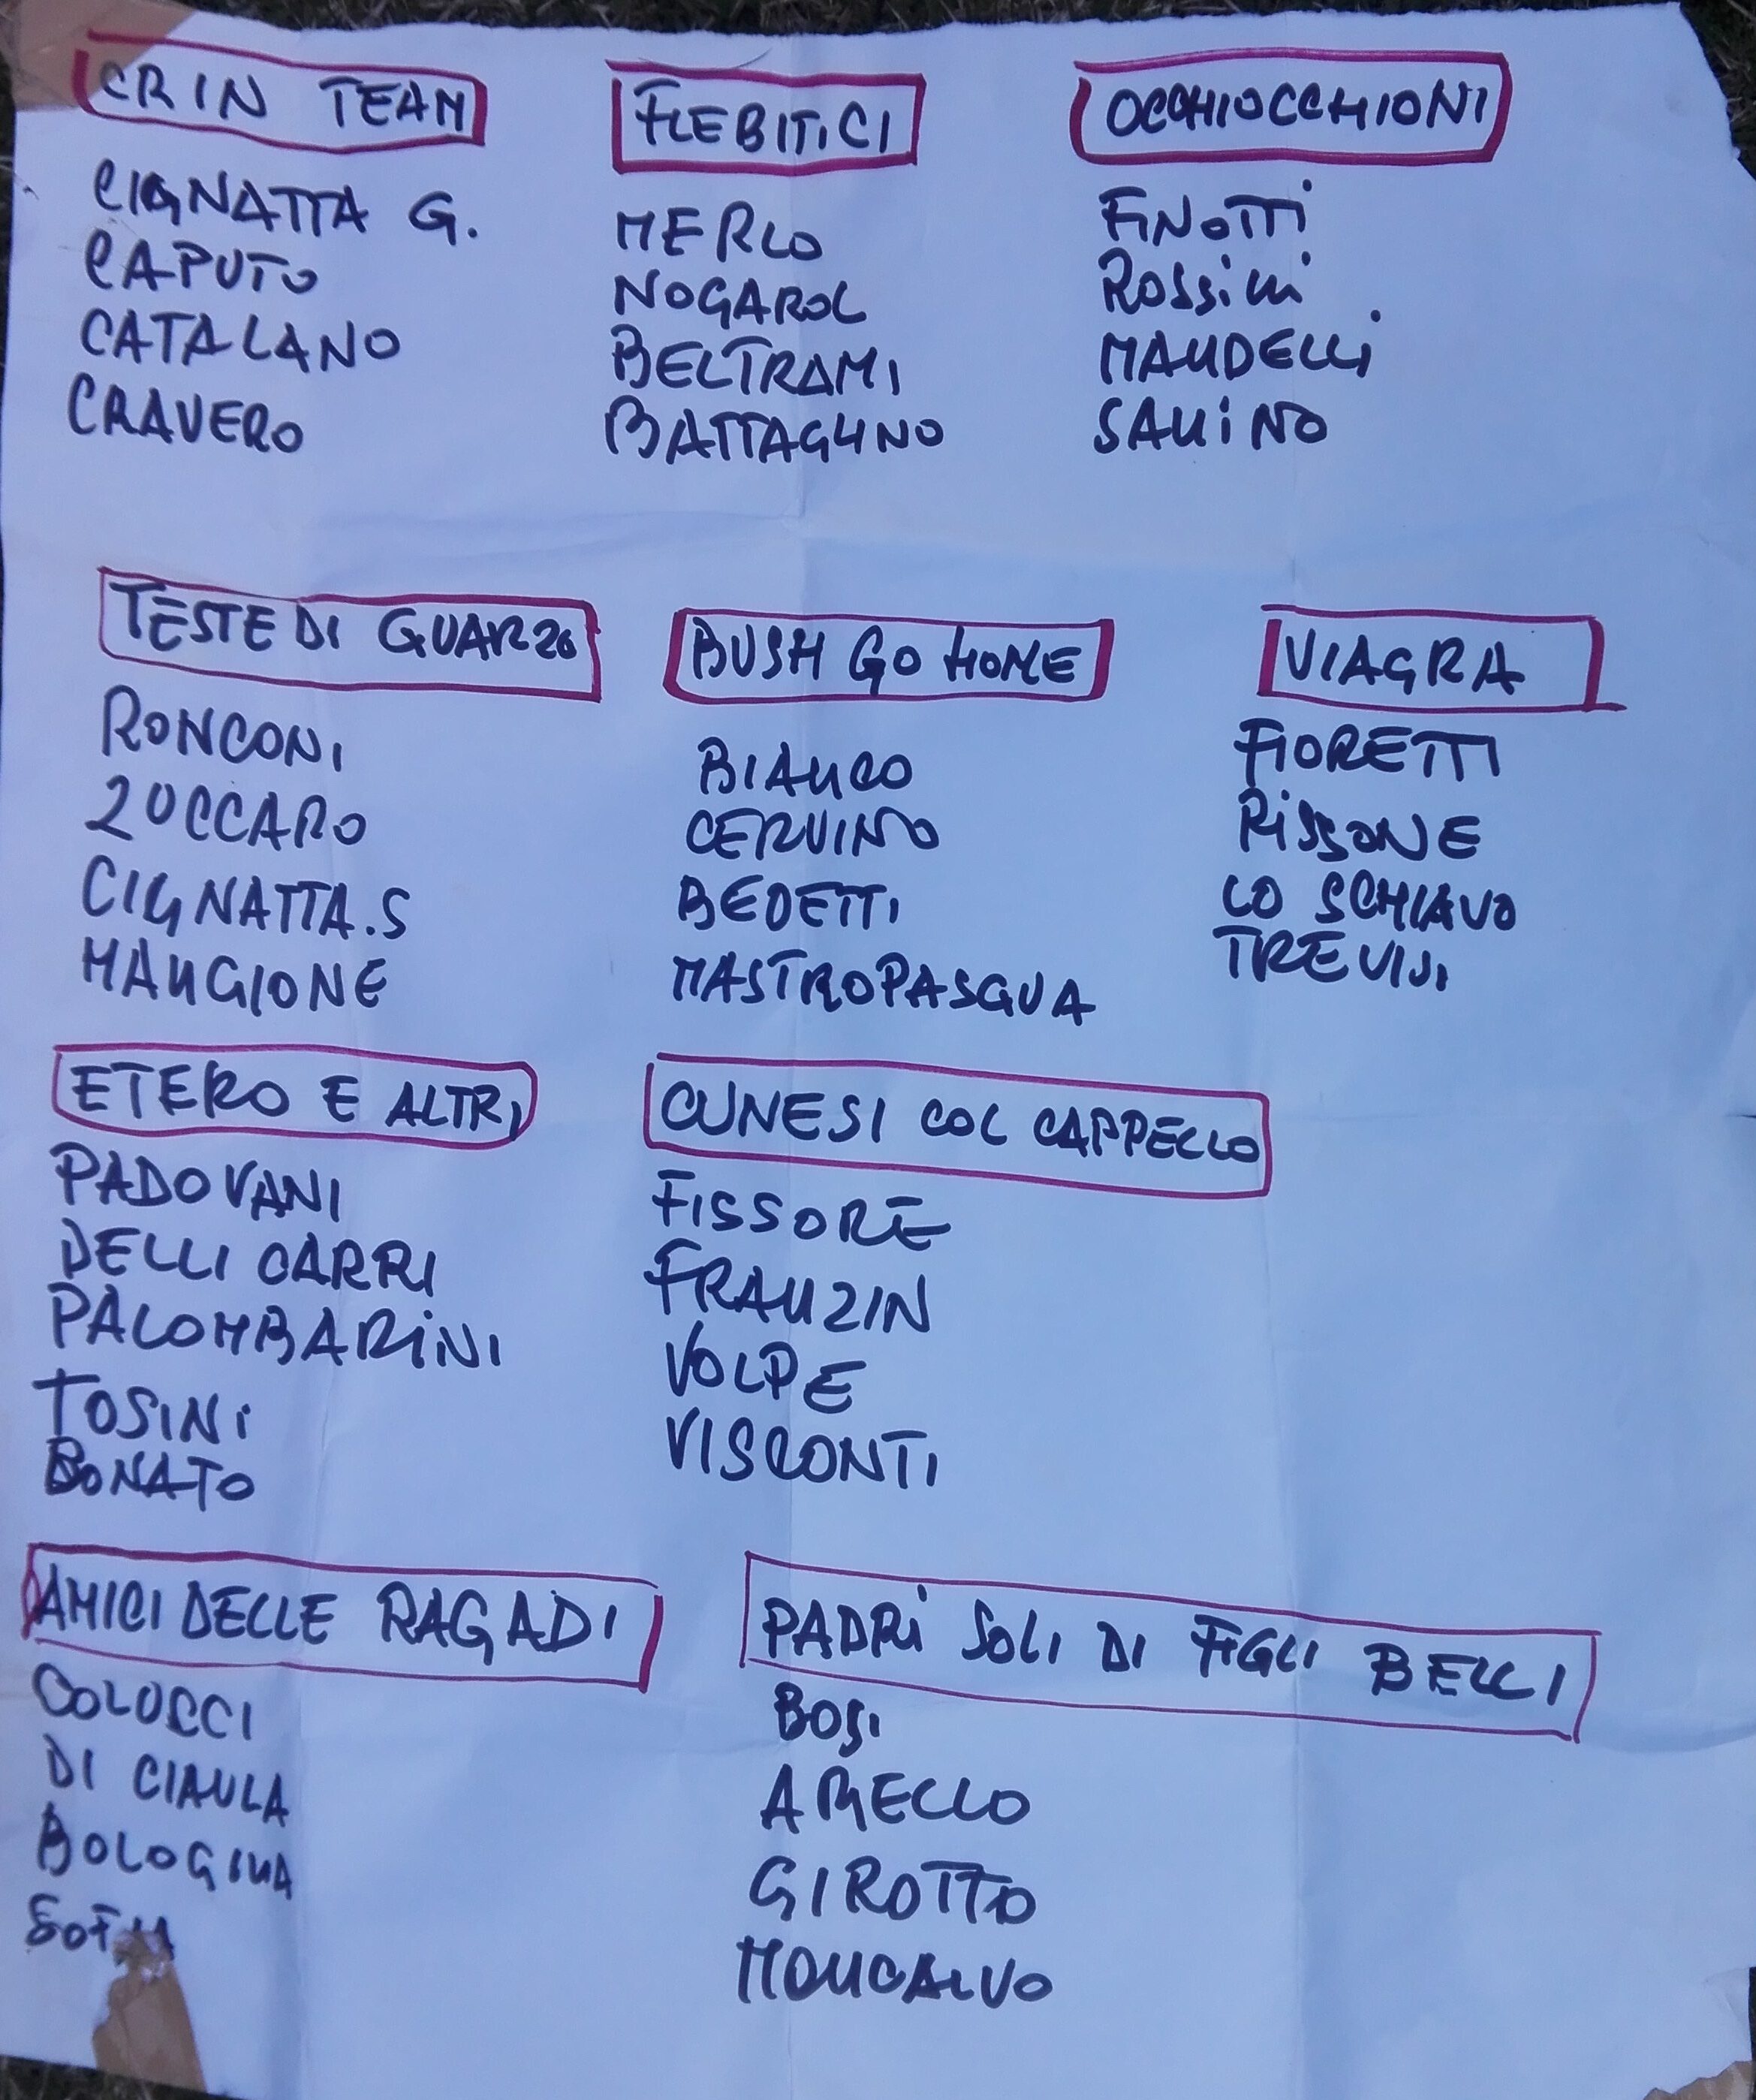 CRIN TEAM
CIGNATTA G.
CAPUTO
CATALANO
CRAVERO
FLEBITICI
MERLO
NOGAROL
BELTRAMI
BATTAGLINO
OCCHIOCCHIONI
FINOTTi
ROSSiNi
MANDELLi
SANiNO
TESTE DI QUARZO
RONCONI
ZUCCARO
CIGNATTA.S
MANGIONE
BUSH GO HOME
BIANCO
CERVINO
BEDETTI
MASTROPASQUA
VIAGRA
FIORETTI
RiSSONE
LO SCHIAVO
TREVISI
ETERO E ALTRI
PADOVANI
DELLI CARRI
PALOMBARiNI
TOSINi
BONATO
CUNESI COL CAPPELLO
FISSORE
FRANZIN
VOLPE
VISCONTI
AMICI DELLE RAGADI
COLUCCI
DI CIAULA
BOLOGNA
PADRi SOLI DI FIGLI BELLI
BOSI
ABELLO
GIROTTO
MONCALVO